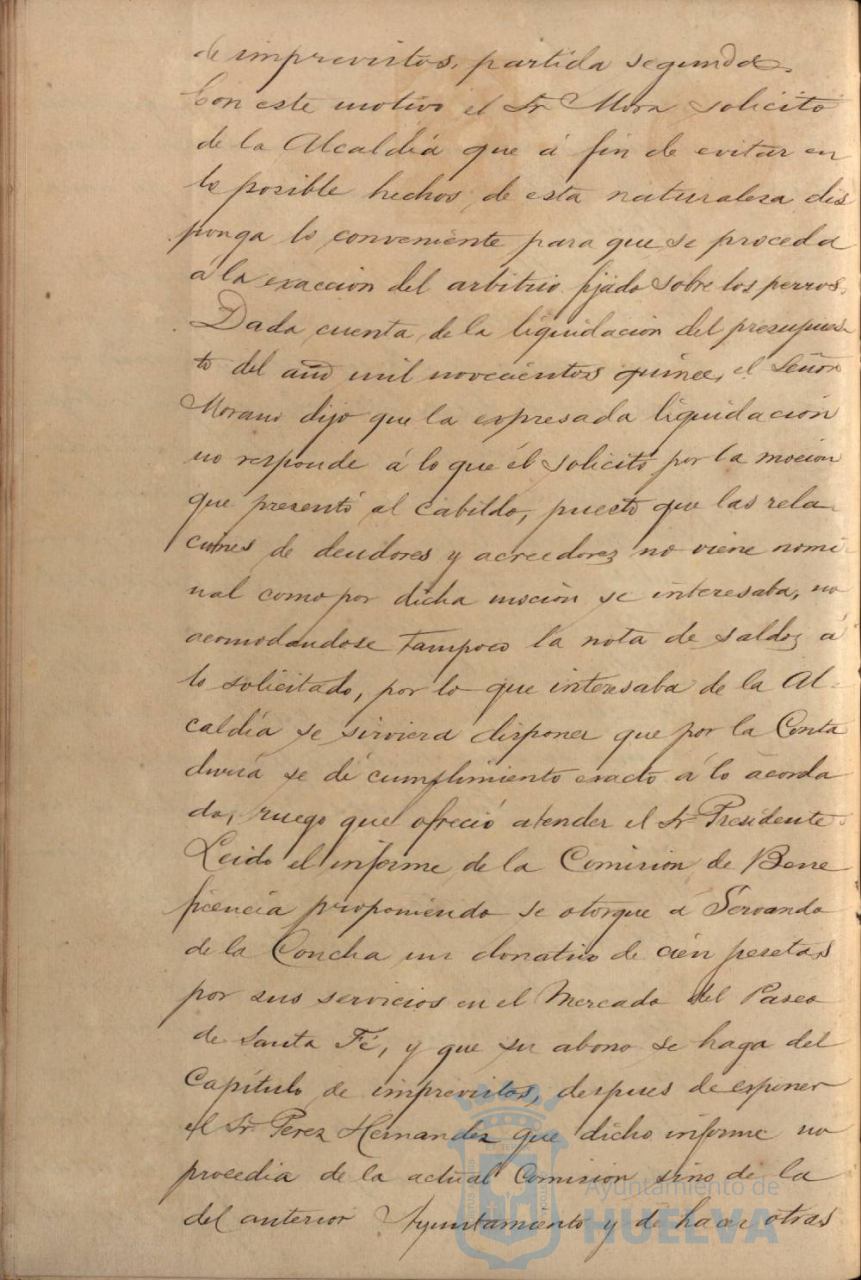 de imprevistos, partida segunda.
Con este motivo el Sr Mora solicitó
de la Alcaldía que á fin de evitar en
lo posible hechos de esta naturaleza dis
ponga lo conveniente para que se proceda
á la exaccion del arbitrio fijado sobre los perros.
Dada cuenta de la liquidación del presupues
to del año mil novecientos quince, el Señor
Morano dijo que la expresada liquidación
no responde á lo que él solicitó por la moción
que presentó al Cabildo, puesto que las rela
ciones de deudores y acreedores no viene nomi
nal como por dicha moción se interesaba, no
acomodandose tampoco la nota de saldos á
lo solicitado, por lo que interesaba de la Al-
caldía se sirviera disponer que por la Conta
duría se dé cumplimiento exacto á lo acorda
do, ruego que ofreció atender el Sr Presidente.
Leido el informe de la Comision de Bene
ficencia proponiendo se otorgue á Servando
de la Concha un donativo de cien pesetas
por sus servicios en el Mercado del Paseo
de Santa Fé, y que su abono se haga del
Capítulo de imprevistos, despues de esponer
el Sr Perez Hernandez que dicho informe no
procedia de la actual Comision sino de la
del anterior Ayuntamiento y de hacer otras
Ayuntamiento de
HUELVA